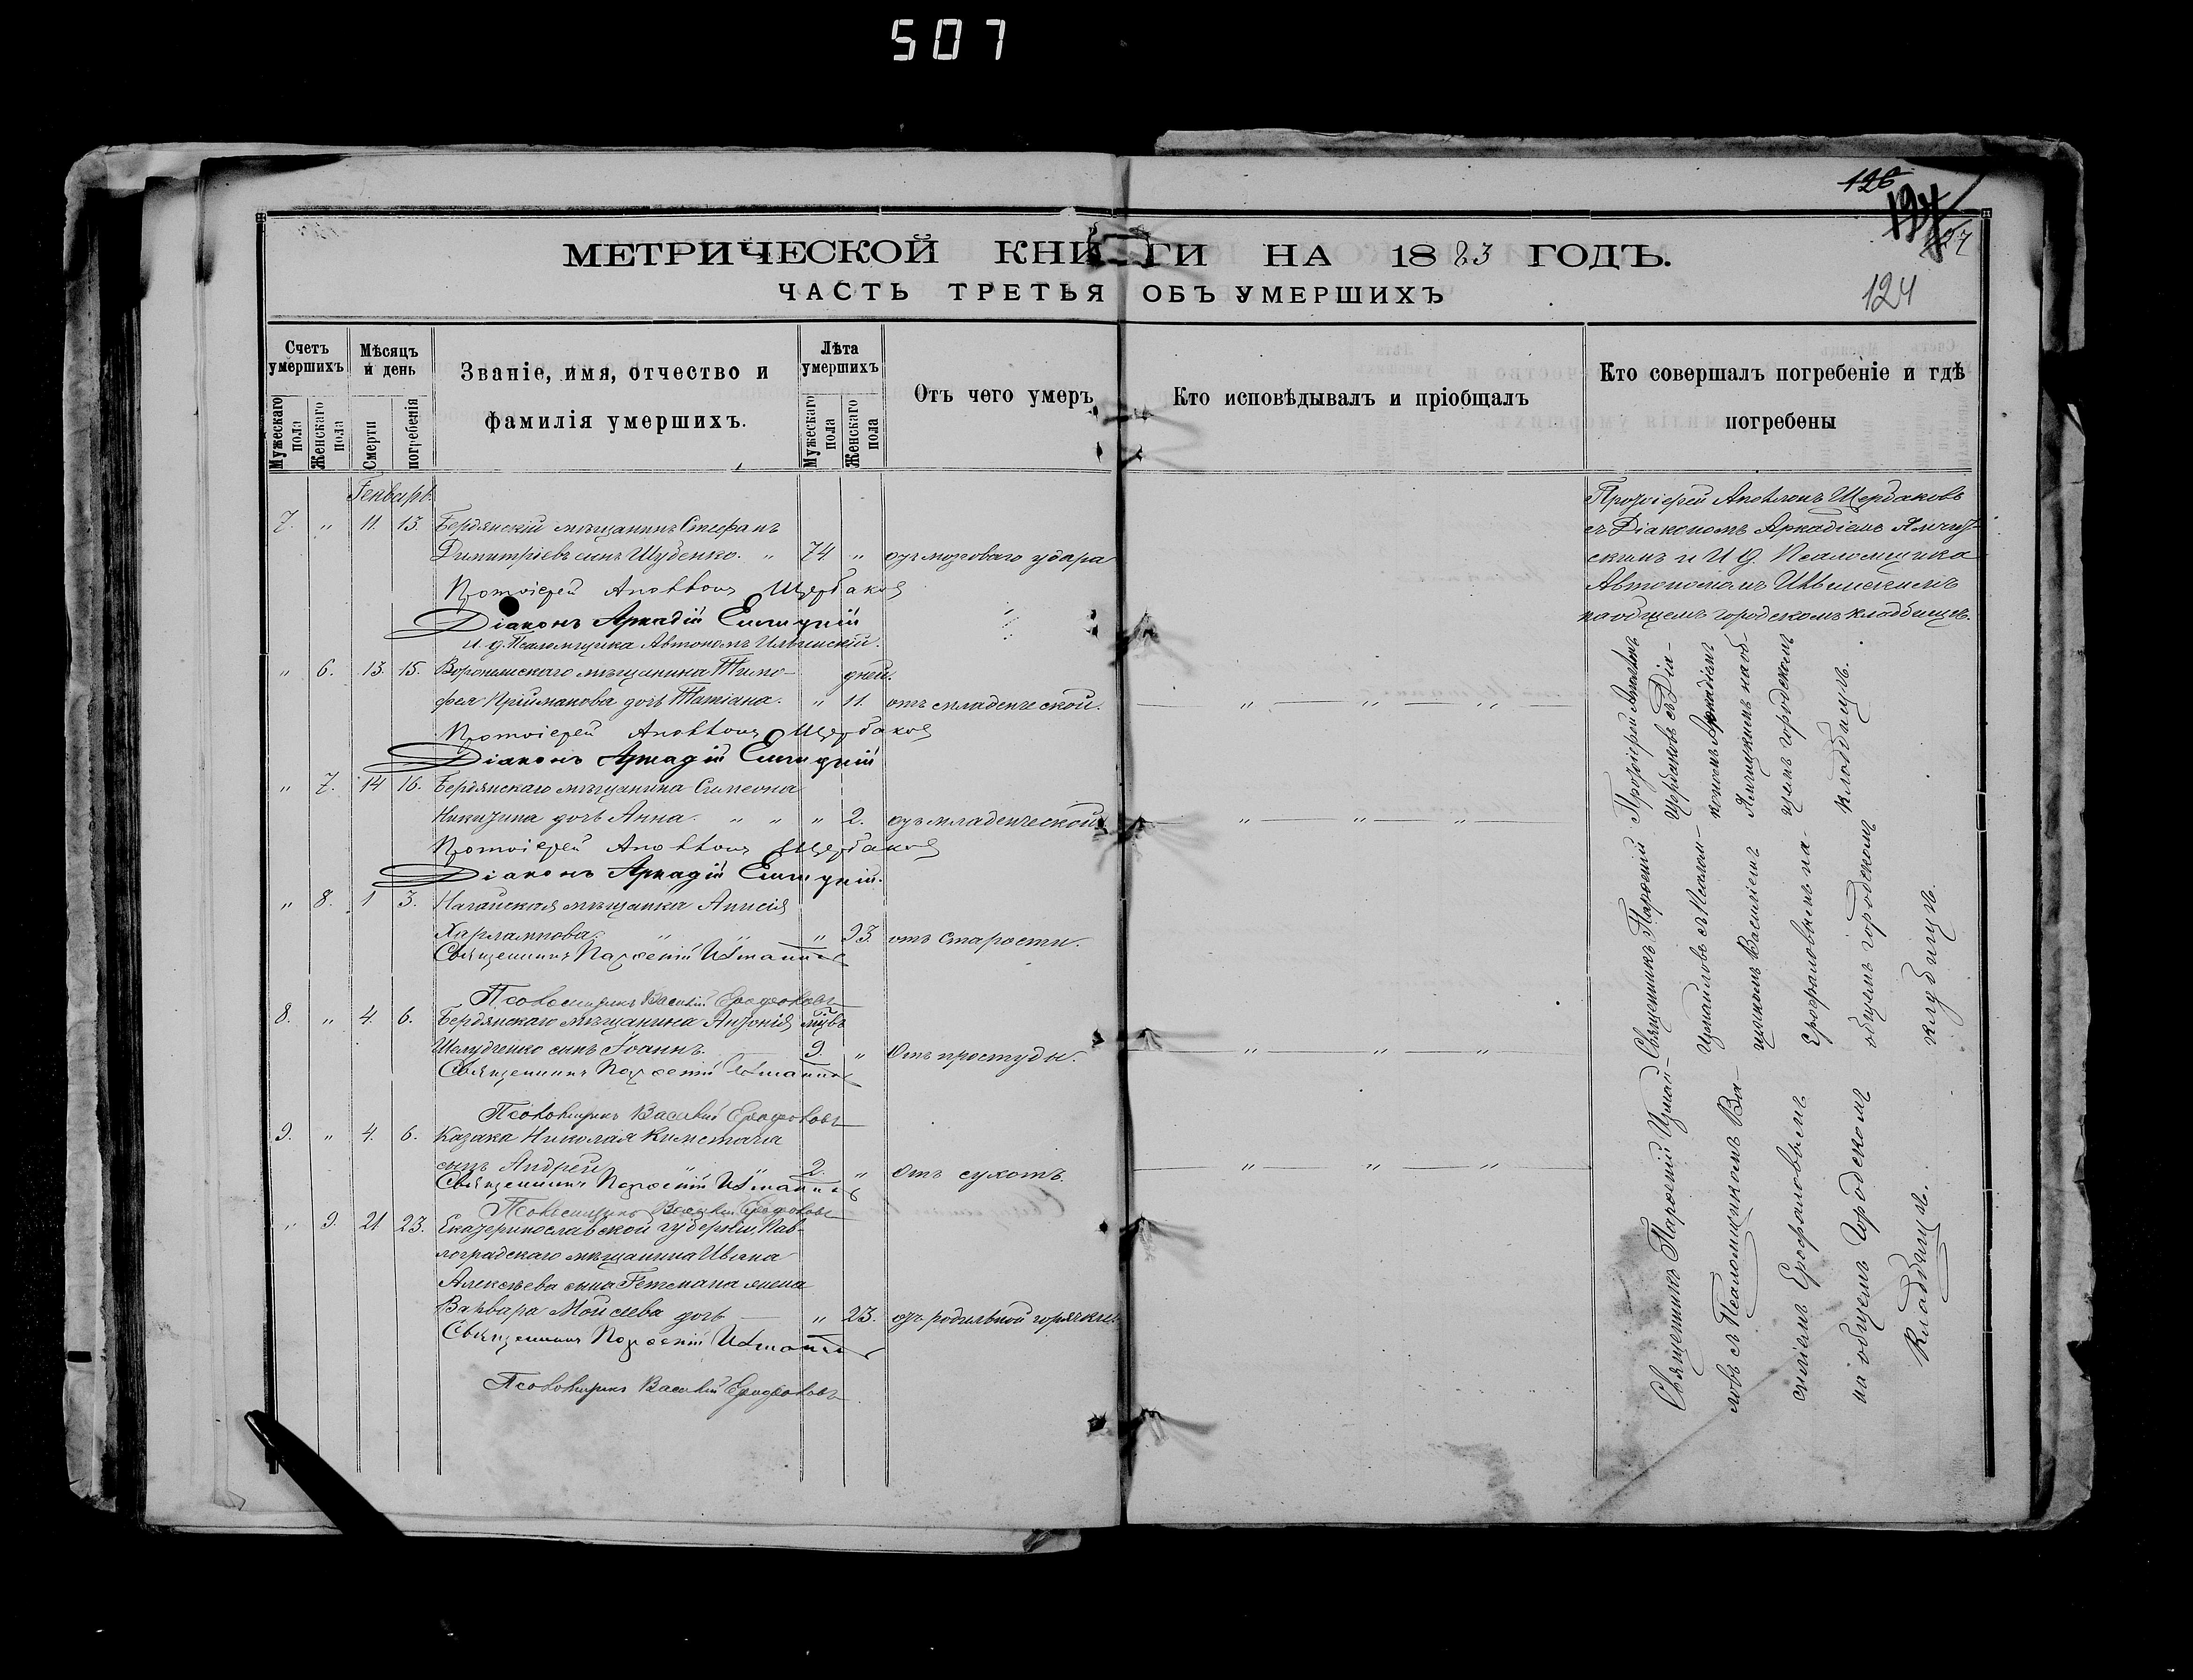 507
126
124
МЕТРИЧЕСКОЙ КНИГИ НА 1883 ГОДЪ.
ЧАСТЬ ТРЕТЬЯ ОБЪ УМЕРШИХЪ
Счетъ умершихъ
Мужескаго пола
Женскаго пола
Мѣсяцъ и день
Смерти
погребенія
Званіе, имя, отчество и
фамилія умершихъ.
Лѣта умершихъ
Мужескаго пола
Женскаго пола
Отъ чего умеръ
Кто исповѣдывалъ и пріобщалъ
Кто совершалъ погребеніе и гдѣ
погребены
Генварь
7. " 11. 13. Бердянскій мѣщанинъ Стефанъ
Димитріевъ сынъ Шубенко. " 74 " отъ мозговаго удара
Протоіерей Аполлонъ Щербаковъ
Діаконъ Аркадій
И. д. Псаломщика Автономъ Ильинскій.
Протоіерей Аполлонъ Щербаковъ
съ Діакономъ Аркадіемъ
скимъ и И д. Псаломщика
Автономомъ Ильинскимъ
на общемъ городскомъ кладбищѣ.
" 6. 13. 15. мѣщанина Тимо-
фея Прійманова дочь Татіана. дней. " 11. отъ младенческой.
Протоіерей Аполлонъ Щербаковъ
Діаконъ Аркадій
Протоіерей Аполлонъ
Щербаковъ съ Діа-
кономъ Аркадіемъ
на об-
щемъ городскомъ
кладбищѣ.
" 7. 14 16. Бердянскаго мѣщанина Симеона
Никитина дочь Анна. " " " 2. отъ младенческой
Протоіерей Аполлонъ Щербаковъ
Діаконъ Аркадій
" 8. 1 3. Ногайская мѣщанка Анисія
Харлампова. " " " 93. отъ старости.
Священникъ Парѳеній Измаиловъ
Псаломщикъ Василій Ерофаловъ
Священникъ Парѳеній
Измаиловъ съ Псалом-
щикомъ Василіемъ
Ерофаловымъ на
общемъ городскомъ
кладбищѣ.
8. " 4. 6. Бердянскаго мѣщанина Антонія
Шелудченко сынъ Іоаннъ. 9 " Отъ простуды.
Священникъ Парѳеній Измаиловъ
Псаломщикъ Василій Ерофаловъ
9. " 4. 6. Казака Николая
сынъ Андрей " " 2. " Отъ сухотъ.
Священникъ Парѳеній Измаиловъ
Псаломщикъ Василій Ерофаловъ
" 9. 21 23. Екатеринославской губерніи, Пав-
лоградскаго мѣщанина Ивана
Алексѣева сына Гетмана жена
Варвара Моисеева дочь — " 23. отъ родильной горячки.
Священникъ Парѳеній Измаиловъ
Псаломщикъ Василій Ерофаловъ
Священникъ Парѳеній Измаи-
ловъ съ Псаломщикомъ Ва-
силіемъ Ерофаловымъ
на общемъ Городскомъ
кладбищѣ.